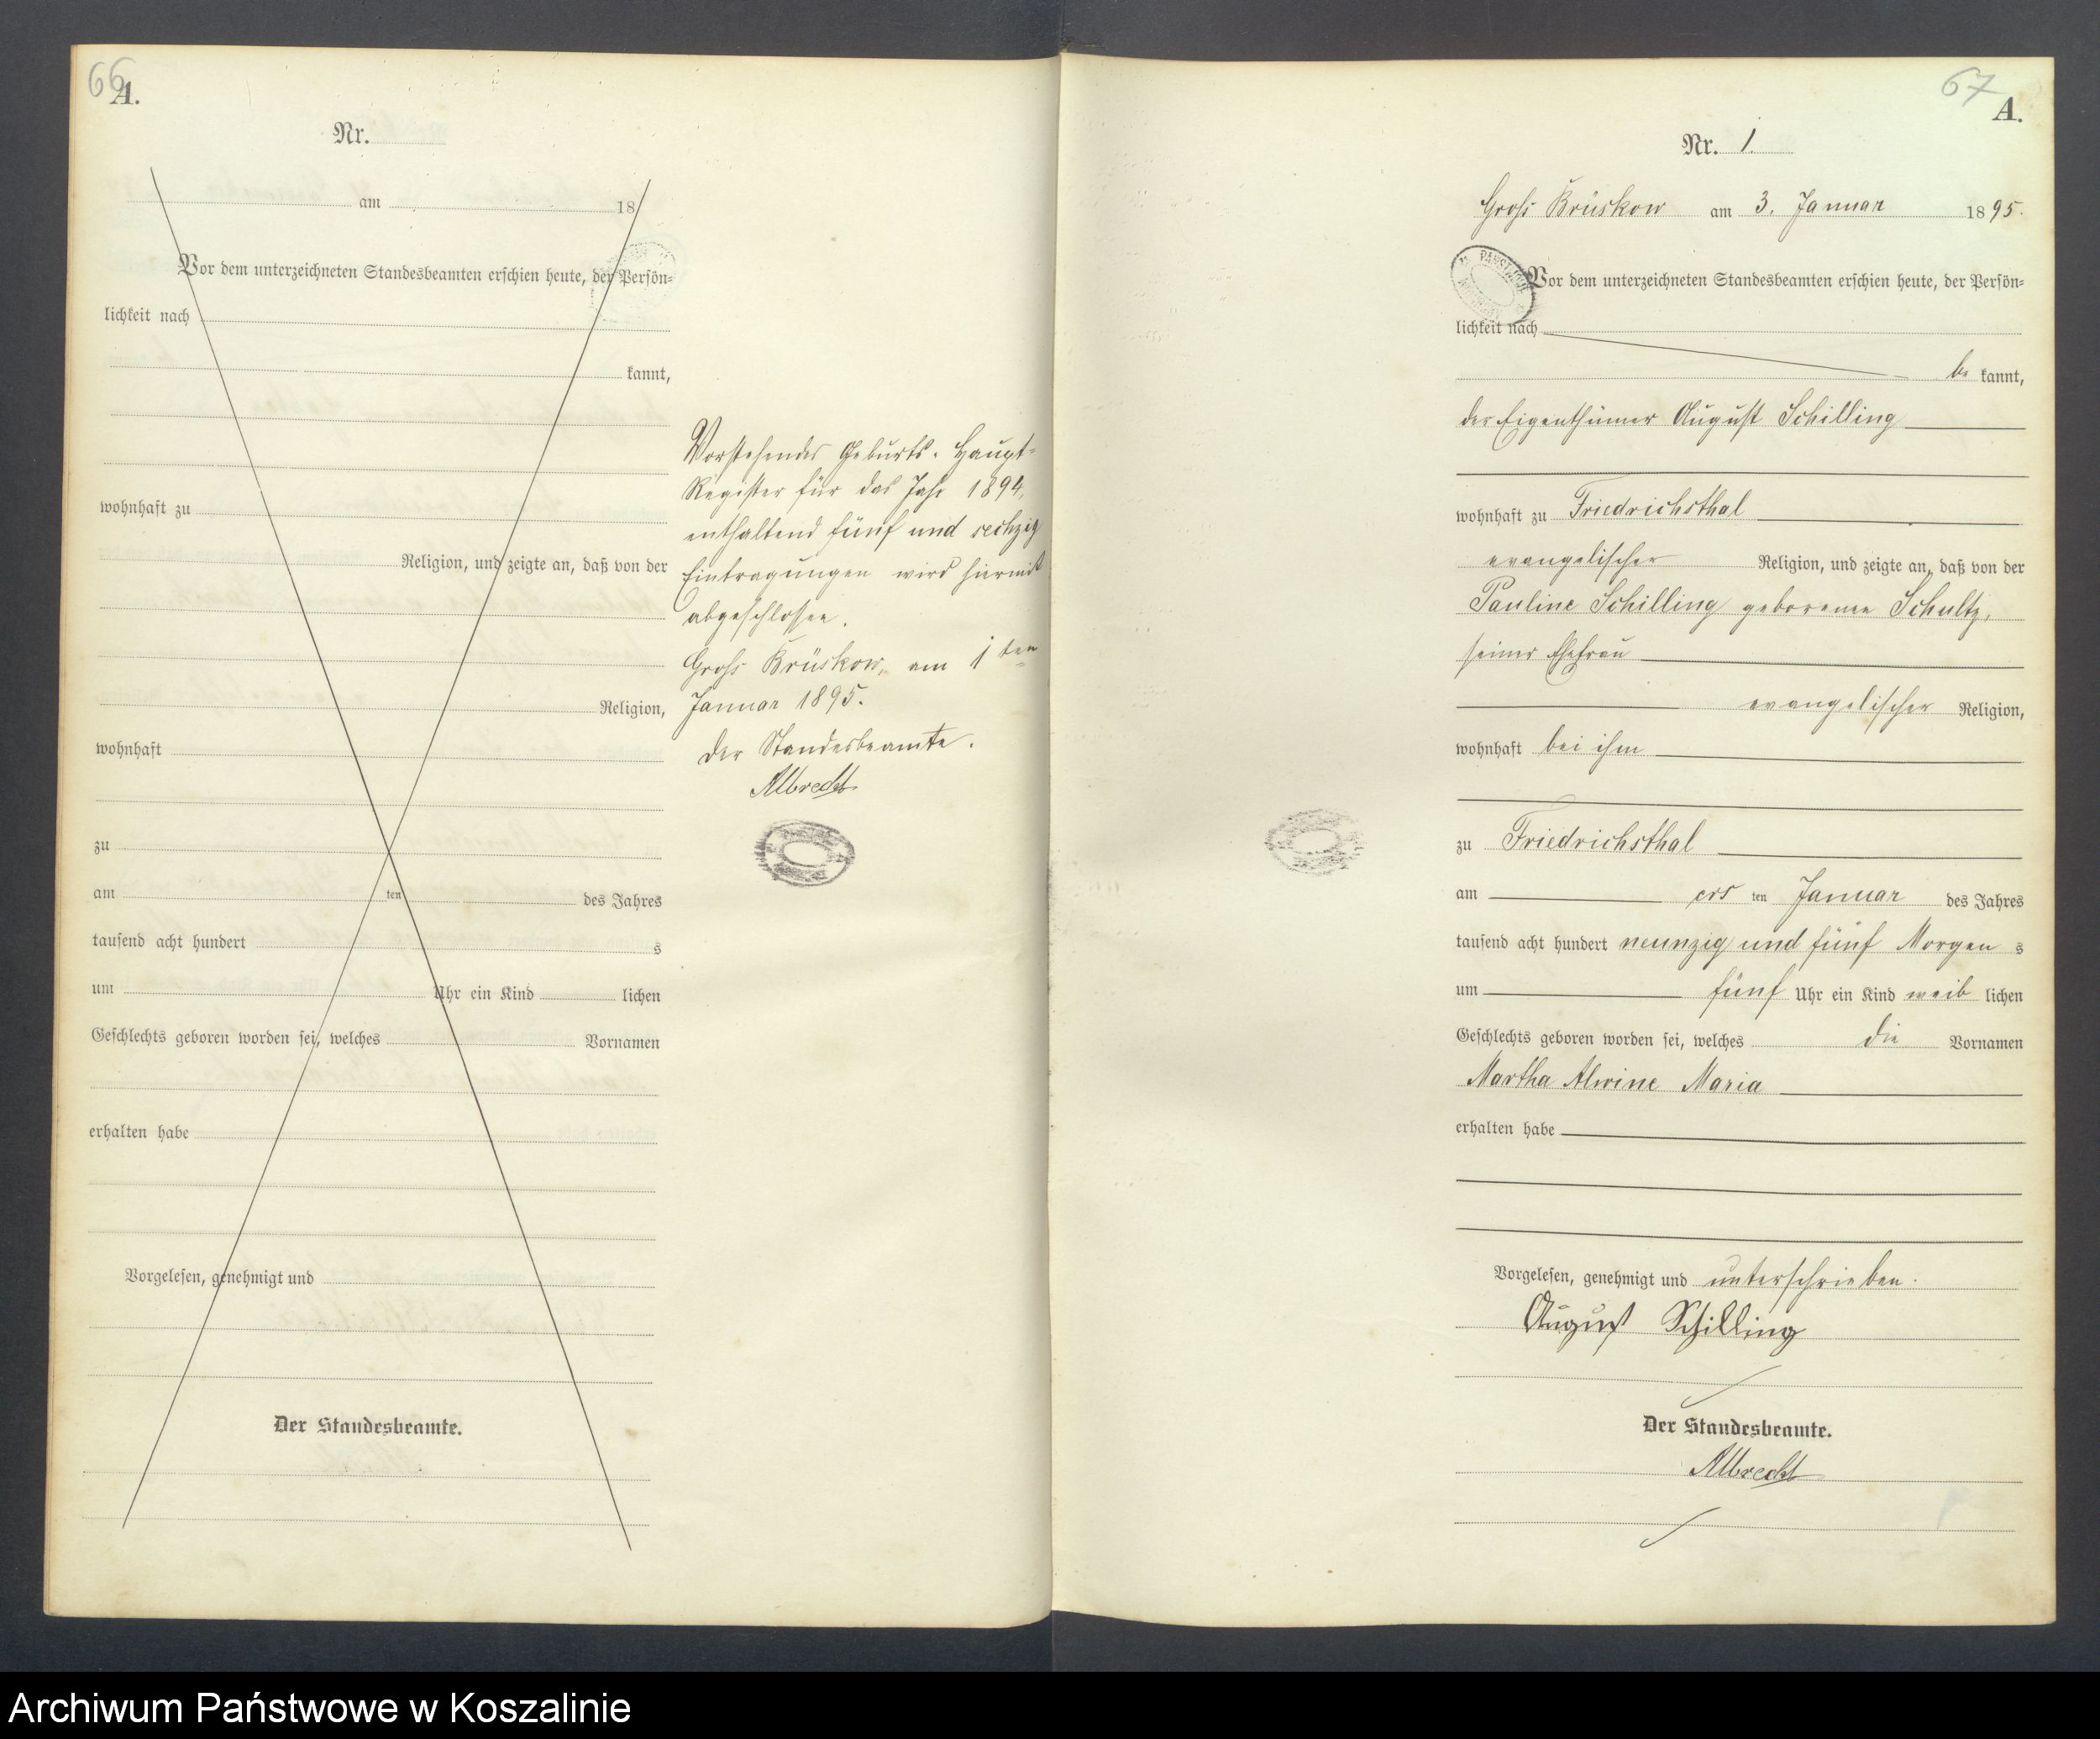 66
A.
Nr.
am 18
Vor dem unterzeichneten Standesbeamten erschien heute, der Persön-
lichkeit nach
kannt,
wohnhaft zu
Religion, und zeigte an, daß von der
Religion,
wohnhaft
zu
am ten des Jahres
tausend acht hundert s
um Uhr ein Kind lichen
Geschlechts geboren worden sei, welches Vornamen
erhalten habe
Vorgelesen, genehmigt und
Der Standesbeamte.
Vorstehendes Geburts-Haupt-
Register für das Jahr 1894,
enthaltend fünf und sechzig
Eintragungen wird hiermit
abgeschlossen.
Groß Brüskow, am 1ten
Januar 1895.
Der Standesbeamte.
Albrecht
67
A.
Nr. 1.
Groß Brüskow am 3. Januar 1895.
Vor dem unterzeichneten Standesbeamten erschien heute, der Persön-
lichkeit nach
be kannt,
der Eigenthümer August Schilling
wohnhaft zu Friedrichsthal
evangelischer Religion, und zeigte an, daß von der
Pauline Schilling geborenen Schultz,
seiner Ehefrau
evangelischer Religion,
wohnhaft bei ihm
zu Friedrichsthal
am ers ten Januar des Jahres
tausend acht hundert neunzig und fünf Morgen s
um fünf Uhr ein Kind weib lichen
Geschlechts geboren worden sei, welches die Vornamen
Martha Alwine Maria
erhalten habe
Vorgelesen, genehmigt und unterschrieben.
August Schilling
Der Standesbeamte.
Albrecht
Archiwum Państwowe w Koszalinie